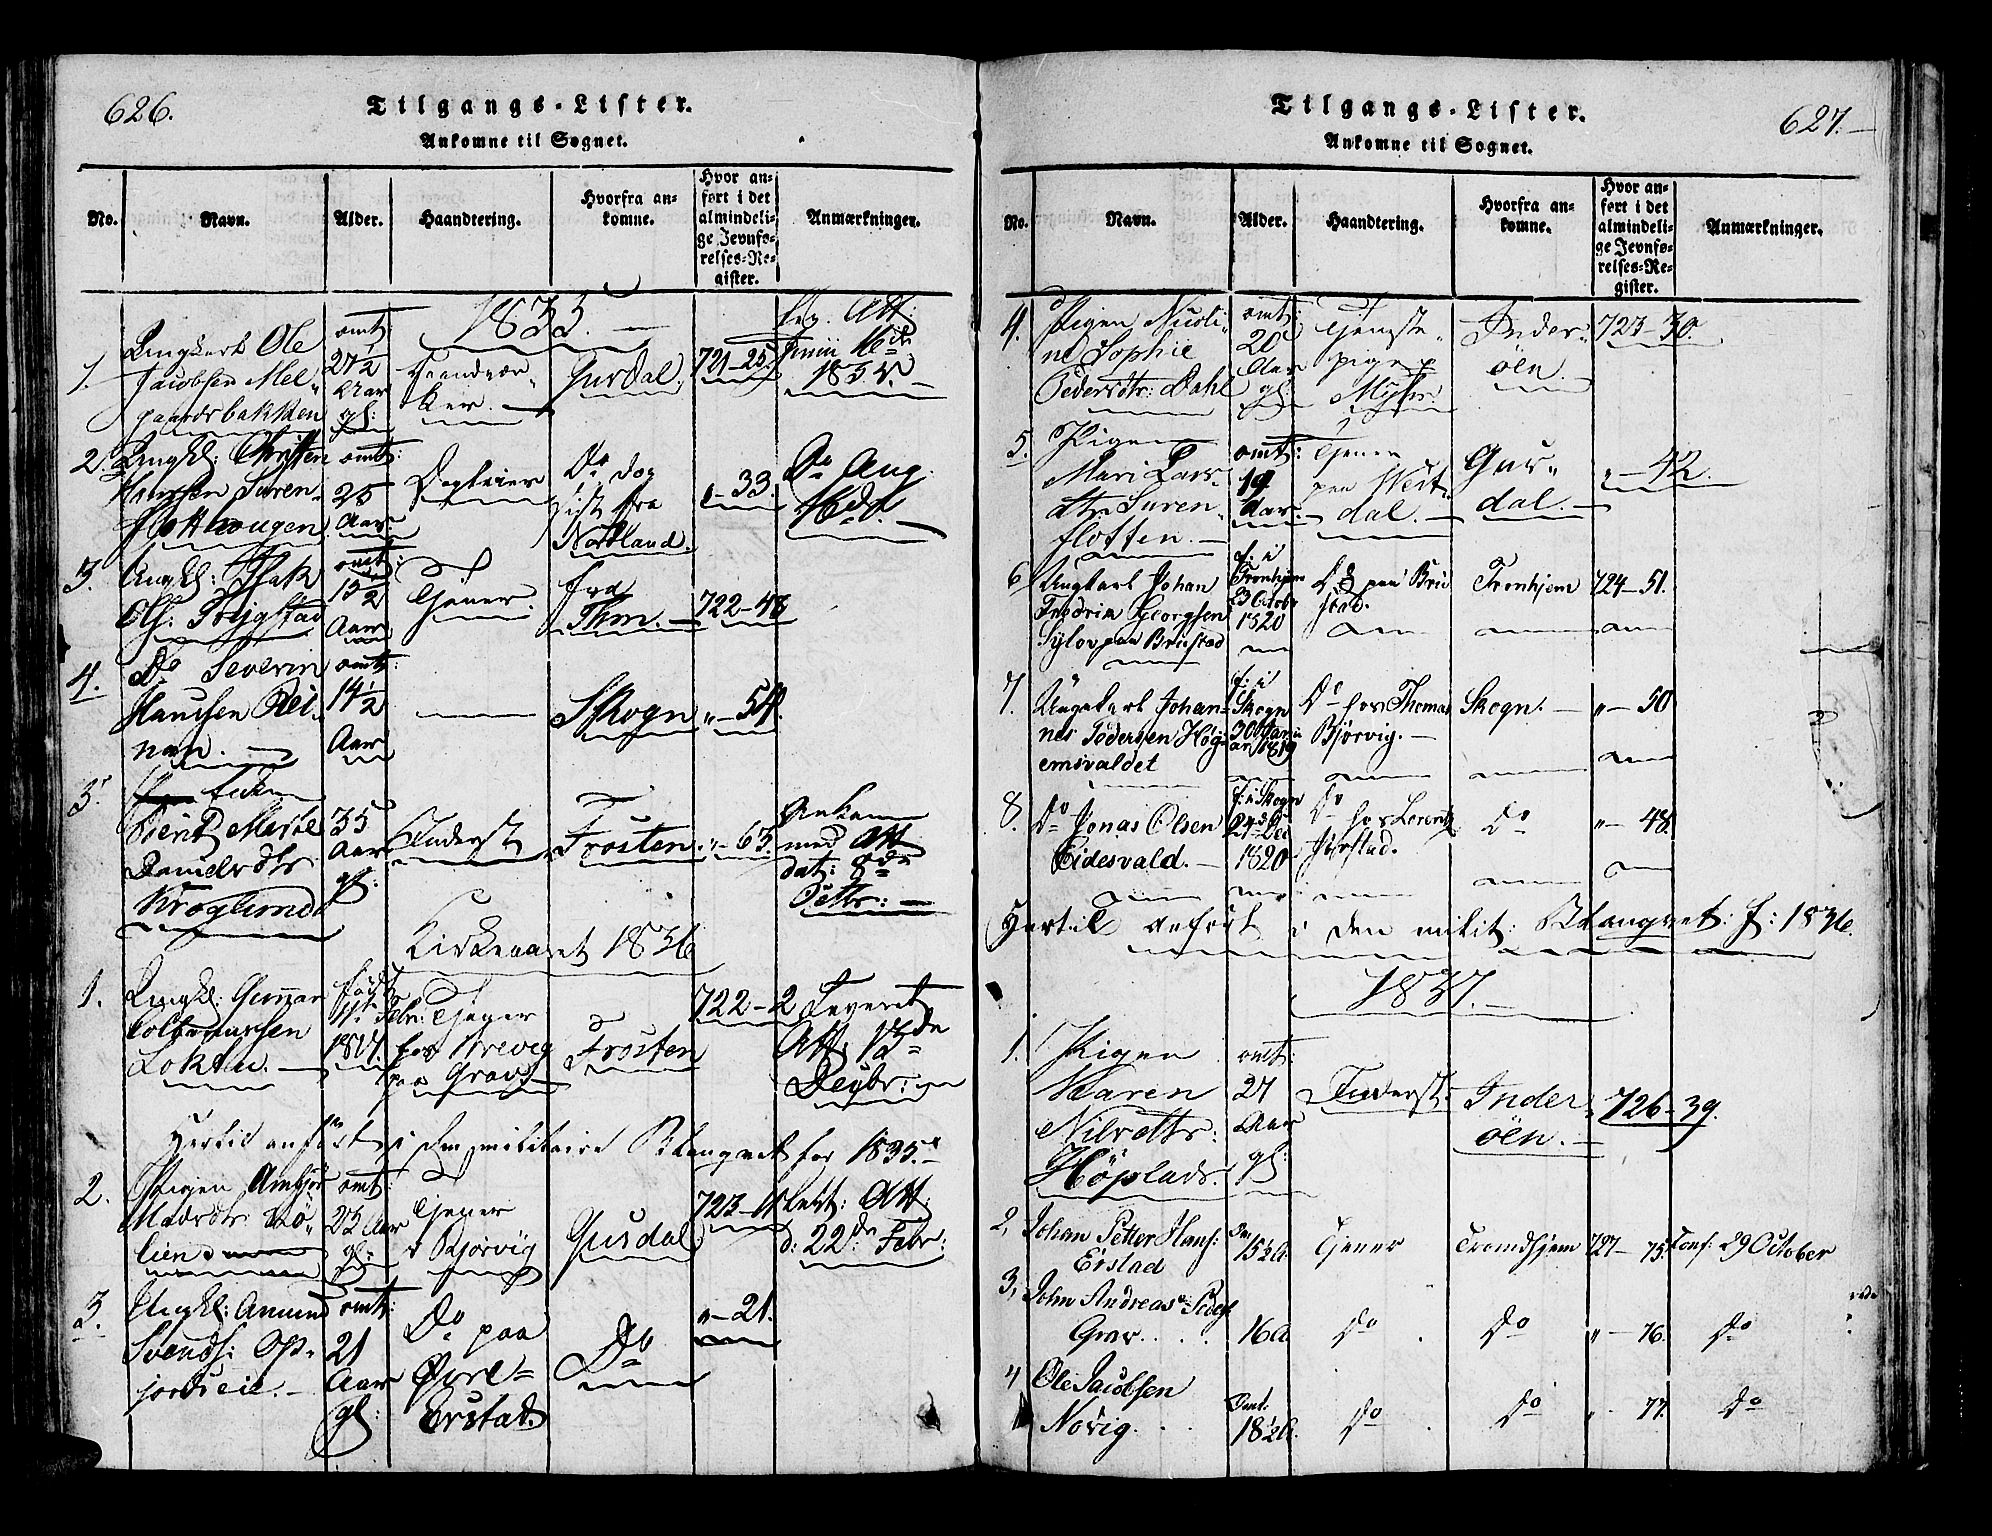 626.
Tilgangs-Lister.
Ankomne til Sognet.
No.
Navn.
Alder.
Haandtering.
Hvorfra an-
komne.
Hvor an-
ført i det
almindeli-
ge Jevnfø-
relses-Re-
gister.
Anmærkninger.
1835.
1.
Ungkarl Ole
Jacobsen Mel-
gaardsbakken
omt:
27½
Aar
gl:
Haandvær-
ker.
Gusdal.
721-25.
Att:
Junii 16de
2.
Ungkl: Christen
Suren-
flotthaugen
omt:
25
Aar
Dagleier
Do dog
sidst fra
Nordland.
"-33.
Do Aug:
3.
Ungkl: Isak
Ols: Trygstad
omt:
15½
Aar
Tjener.
fra
Thm.
722-48
4.
Do Severin
Hansen Rei-
nan.
omt:
14½
Aar
Skogn
"-54.
5.
Enken
Berit Marie
Danielsdtr:
Kroglund
35
Aar
gl:
Inderst
Frosten
"-63.
Ankom
med Att
dat: 8de
Octbr:
Kirkeaaret 1836
1.
Ungkl: Gunnar
Lokten.
født
11te Febr:
1817.
Tjener
hos Krevig
paa Grav
Frosten
722-2
Leveret
Att: 13de
Decbr:
Hertil anført i den militaire Blanquet for 1835.
2.
Pigen
Madsdtr:
lien
omt:
23 Aar
gl:
Tjener
Bjørvig
Gusdal
723-11
Att:
d: 22de Febr:
3.
Ungkl: Amund
Svends: Op-
jordseie.
omt:
21
Aar
gl:
Do paa
Øvre-
Erstad.
Do
"-21.
627.
Tilgangs-Lister.
Ankomne til Sognet.
No.
Navn.
Alder.
Haandtering.
Hvorfra an-
komne.
Hvor an-
ført i det
almindeli-
ge Jevnfø-
relses-Re-
gister.
Anmærkninger.
4.
Pigen Nicoli-
ne Sophie
Pedersdtr: Dahl
omt:
20
Aar
gl:
Tjeneste-
pige p
Inder-
øen
723-30.
5.
Pigen
Mari Lars-
dtr: Suren-
flotten.
omt:
19
Aar.
Tjener
paa West-
dal.
Gus-
dal.
"-42.
6
Ungkarl Johan
Fredrik Georgsen
Sylov paa Brustad
f: i
Tronhjem
23 Octobr
1820
Do paa Bru
stad.
Tronhjem
724-51.
7.
Ungekarl Johan-
nes Pedersen Høg-
emsvaldet
f: i
Skogn
30te Janu
ar 1819
Do hos Thomas
Bjørvig.
Skogn.
"-50
8.
Do Jonas Olsen
Eidesvald.
f: i Skogn
24de Dec
1820
Do hos Lorentz
Do
"-48.
Hertil anført i den milit: Blanqvet: f: 1836.
1837.
1.
Pigen
Karen
Nilsdtr:
Høplads.
omt:
27
Aar
gl:
Inderst.
Inder-
øen.
726-39.
2,
Johan Petter Hans:
Erstad
Om
15½ A.
Tjener
Trondhjem
727- 75.
Conf: 29 October
3,
John Andreas
Grav. . .
16 A
Do
Do
"- 76.
Do
4
Ole Jacobsen
Norvig. . .
Omt.
18½ A.
Do
Do
"- 77.
Do